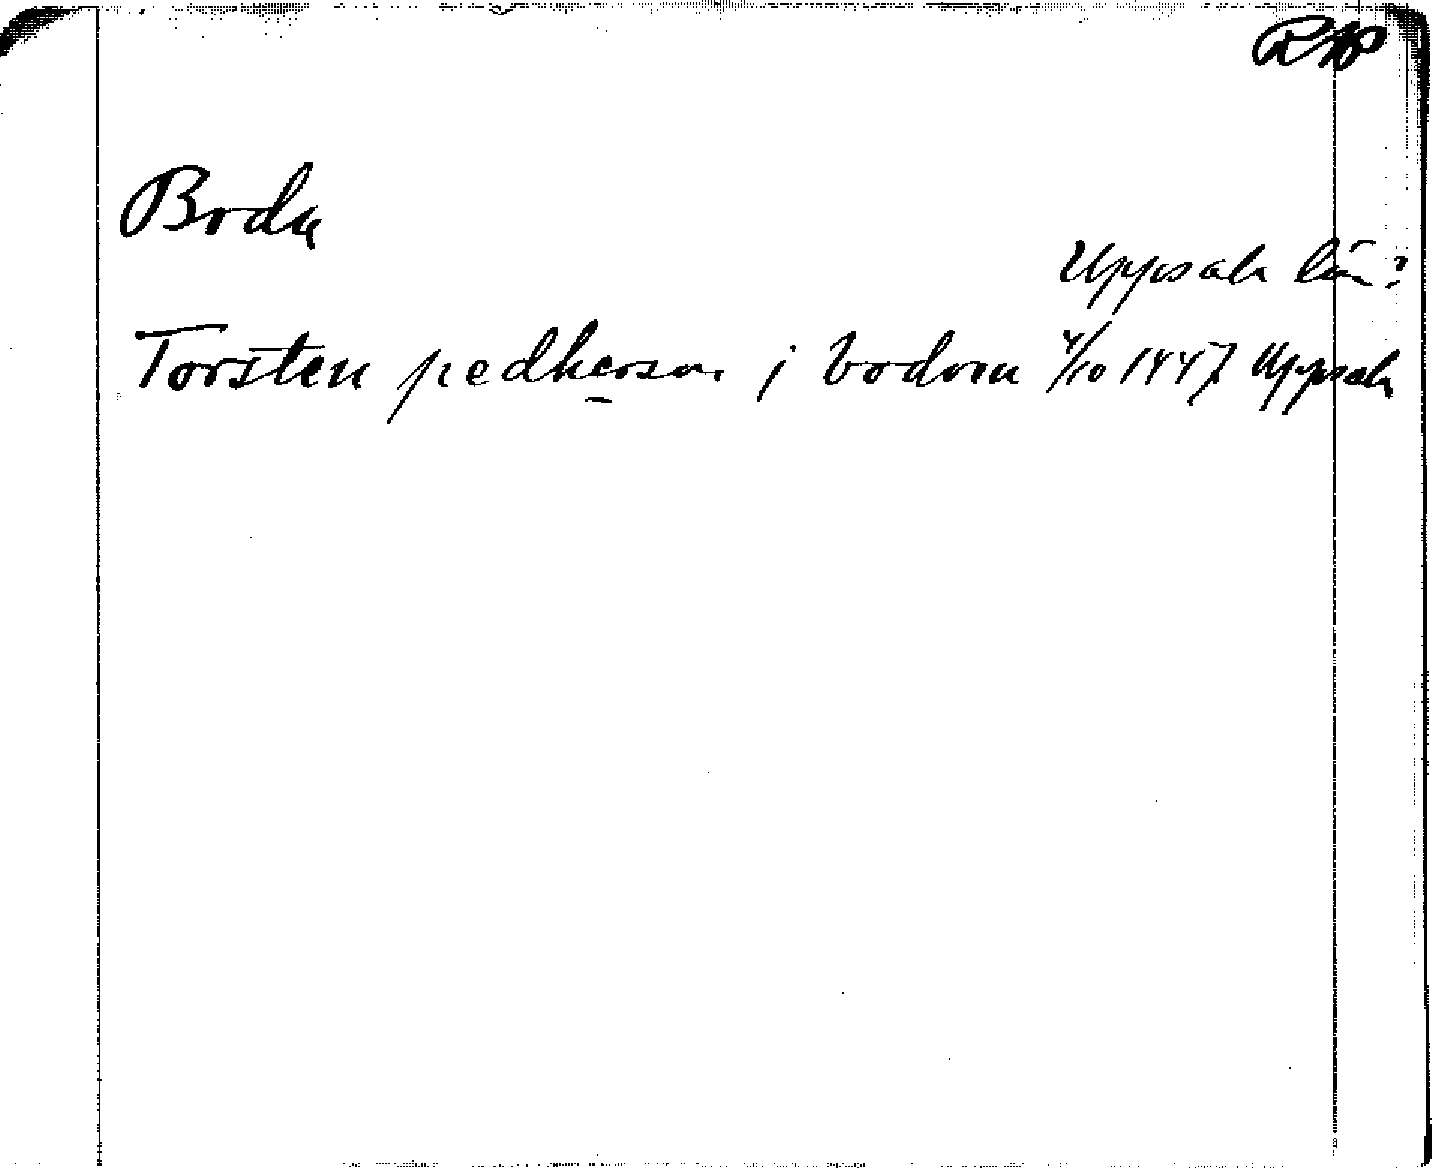 RAP
Boda
Uppsala län?
Torsten pedherson i bodom 4/10 1447 Uppsala